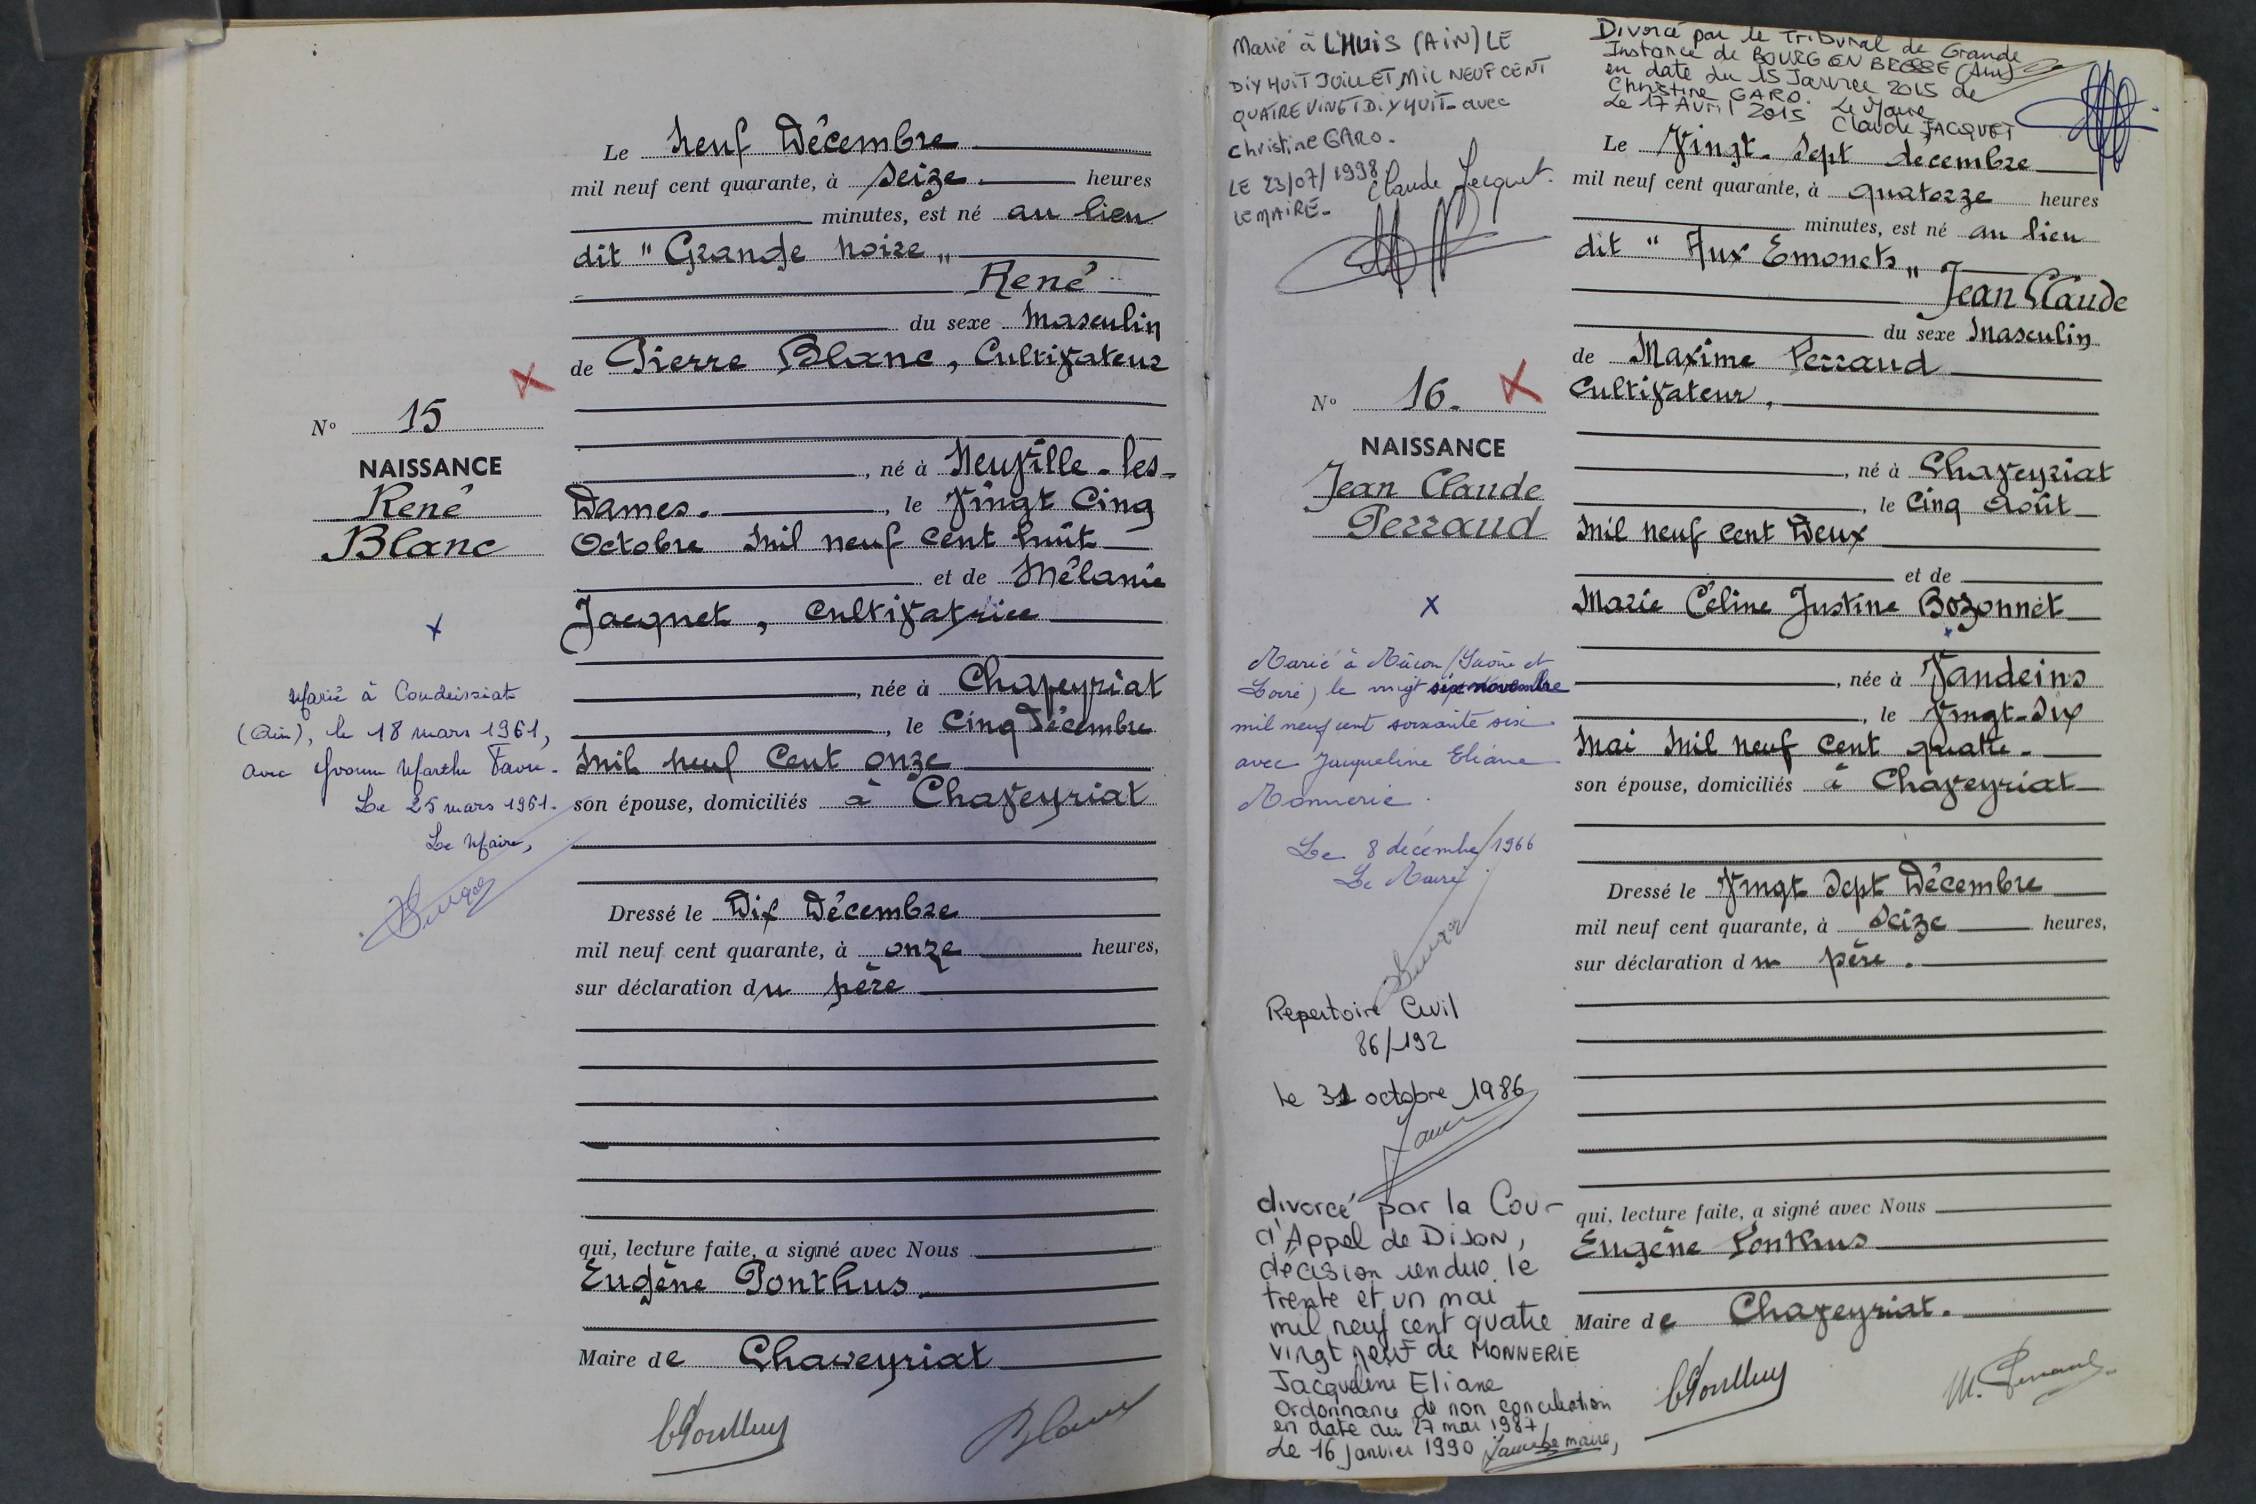 Le Neuf Décembre
mil neuf cent quarante, à seize heures
minutes, est né au lieu
dit "Grange Noire"
René
du sexe Masculin
de Pierre Blanc, Cultivateur
, né à Neuville-les-
Dames. , le Vingt Cinq
Octobre mil neuf cent huit
et de Mélanie
Jacquet, cultivatrice
, née à Chaveyriat
, le Cinq Décembre
mil neuf cent onze
son épouse, domiciliés à Chaveyriat
Dressé le Dix Décembre
mil neuf cent quarante, à onze heures,
sur déclaration du père
qui, lecture faite, a signé avec Nous
Eugène Ponthus
Maire de Chaveyriat
EPonthus
Blanc
N° 15
NAISSANCE
René
Blanc
x
Marié à Condeissiat
(Ain), le 18 mars 1961,
avec Yvonne Marthe Favre.
Le 25 mars 1961.
Le Maire,
Marié à L'HUIS (AIN) LE
DIX HUIT JUILLET MIL NEUF CENT
QUATRE VINGT DIX HUIT avec
Christine GARO.
LE 23/07/1998 Claude Jacquet.
LE MAIRE.
N° 16.
NAISSANCE
Jean Claude
Perraud
x
Marié à Mâcon (Saône et
Loire) le vingt six novembre
mil neuf cent soixante six
avec Jacqueline Eliane
Monnerie.
Le 8 décembre 1966
Le Maire
Repertoire Civil
86/192
le 31 octobre 1986
divorcé par la Cour
d'Appel de DIJON,
décision rendue le
trente et un mai
mil neuf cent quatre
vingt neuf de MONNERIE
Jacqueline Eliane
Ordonnance de non conciliation
en date du 27 mai 1987
Le 16 janvier 1990 Le maire,
Divorcé par le Tribunal de Grande
Instance de BOURG EN BRESSE (Ain)
en date du 15 Janvier 2015 de
Christine GARO.
Le 17 Avril 2015 Le Maire
Claude JACQUET
Le Vingt-sept décembre
mil neuf cent quarante, à quatorze heures
minutes, est né au lieu
dit "Aux Emonets"
Jean Claude
du sexe Masculin
de Maxime Perraud
Cultivateur,
, né à Chaveyriat
, le Cinq Août
mil neuf cent Deux
et de
Marie Céline Justine Bozonnet
, née à Vandeins
, le Vingt-Six
Mai mil neuf cent quatre
son épouse, domiciliés à Chaveyriat
Dressé le Vingt Sept Décembre
mil neuf cent quarante, à Seize heures,
sur déclaration du père.
qui, lecture faite, a signé avec Nous
Eugène Ponthus
Maire de Chaveyriat.
EPonthus
M. Perraud